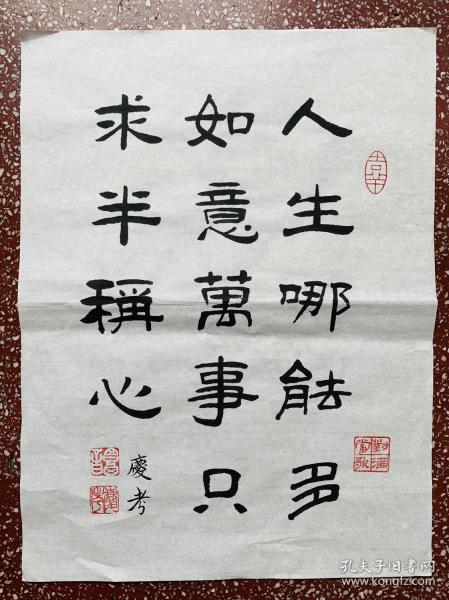 人生哪能多
如意萬事只
求半稱心
慶考
對酒當歌
孔夫子旧书网
www.kongfz.com